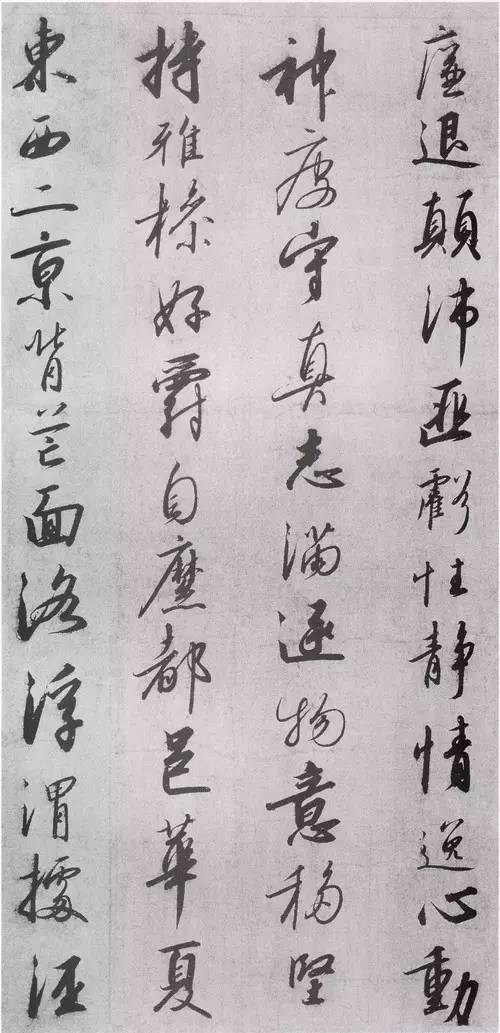 廉退顛沛匪虧性静情逸心動
神疲守真志滿逐物意移堅
持雅操好爵自縻都邑華夏
東西二京背芒面洛浮渭據涇